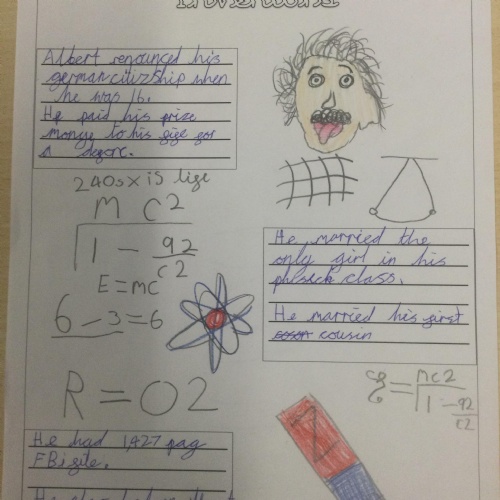 Albert renounced his
german citizship when
he was 16.
He paid his prize
money to his
240sx is lige
M C2
1 - 92
c2
E=mc
6-3=6
R=O2
He married the
only girl in his
class.
He married his girst
cousin
= mc2
1 - 92
c2
He had 1,427 pag
FBi gile.